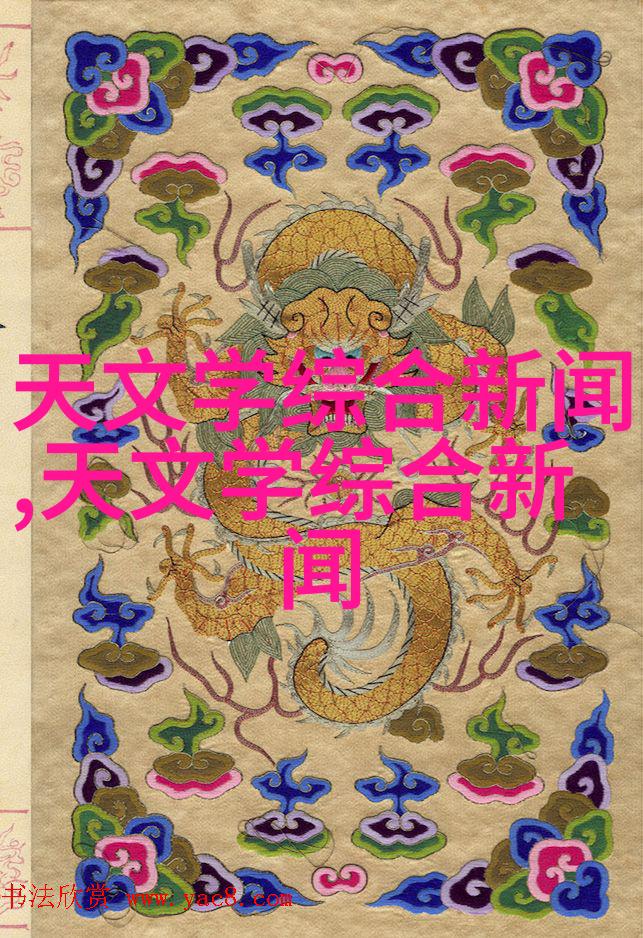 天文学综合新闻
,天文学综合新
闻
书法欣赏 www.yac8.com